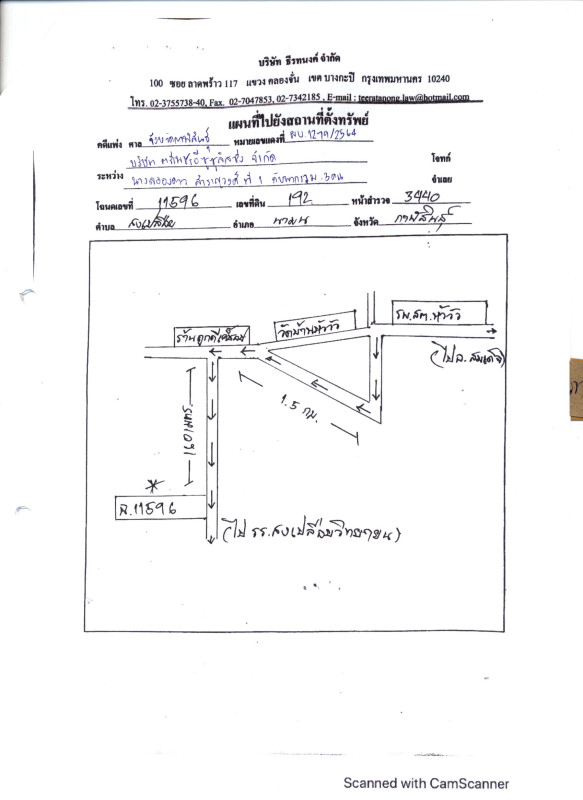 บริษัท ธีรทนงค์ จำกัด
100 ซอย ลาดพร้าว 117 แขวง คลองจั่น เขต บางกะปิ กรุงเทพมหานคร 10240
โทร. 02-3755738-40, Fax. 02-7047853, 02-7342185 , E-mail : teeratanong.law@hotmail.com
แผนที่ไปยังสถานที่ตั้งทรัพย์
คดีแพ่ง ศาล จังหวัดกาฬสินธุ์ หมายเลขแดงที่ ผบ.1279/2564
บริษัท จำกัด โจทก์
ระหว่าง ที่ 1 กับพวกรวม 3 คน จำเลย
โฉนดเลขที่ 11596 เลขที่ดิน 192 หน้าสำรวจ 3440
ตำบล สงเปลือย อำเภอ นามน จังหวัด กาฬสินธุ์
รพ.สต.หัวงัว
วัดบ้านหัวงัว
ร้านถูกดี
(ไป อ. สมเด็จ)
1.5 กม.
160 เมตร
ฉ.11596
(ไป รร.สงเปลือยวิทยายน)
Scanned with CamScanner